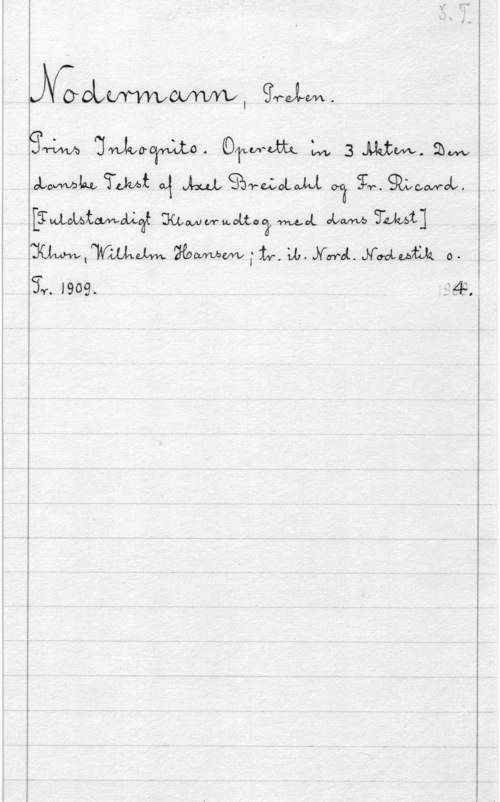 S. T.
Nodermann, Preben.
Prins Inkognito. Operette in 3 Akten. Den
danske Tekst af Axel Breidahl og Fr. Ricard.
[Fuldstændigt Klaverudtog med dans Tekst]
Khvn, Wilhelm Hansen; tr. ib. Nord. Nodestik o.
Tr. 1909. 4.